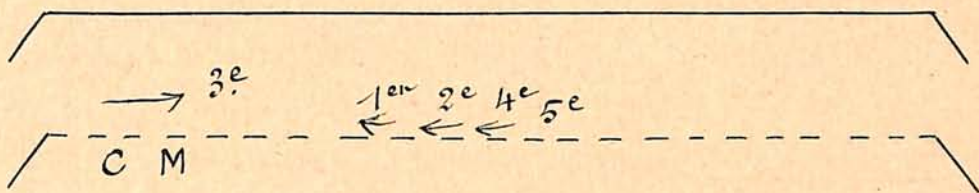 3e
1er 2e 4e 5e
C M